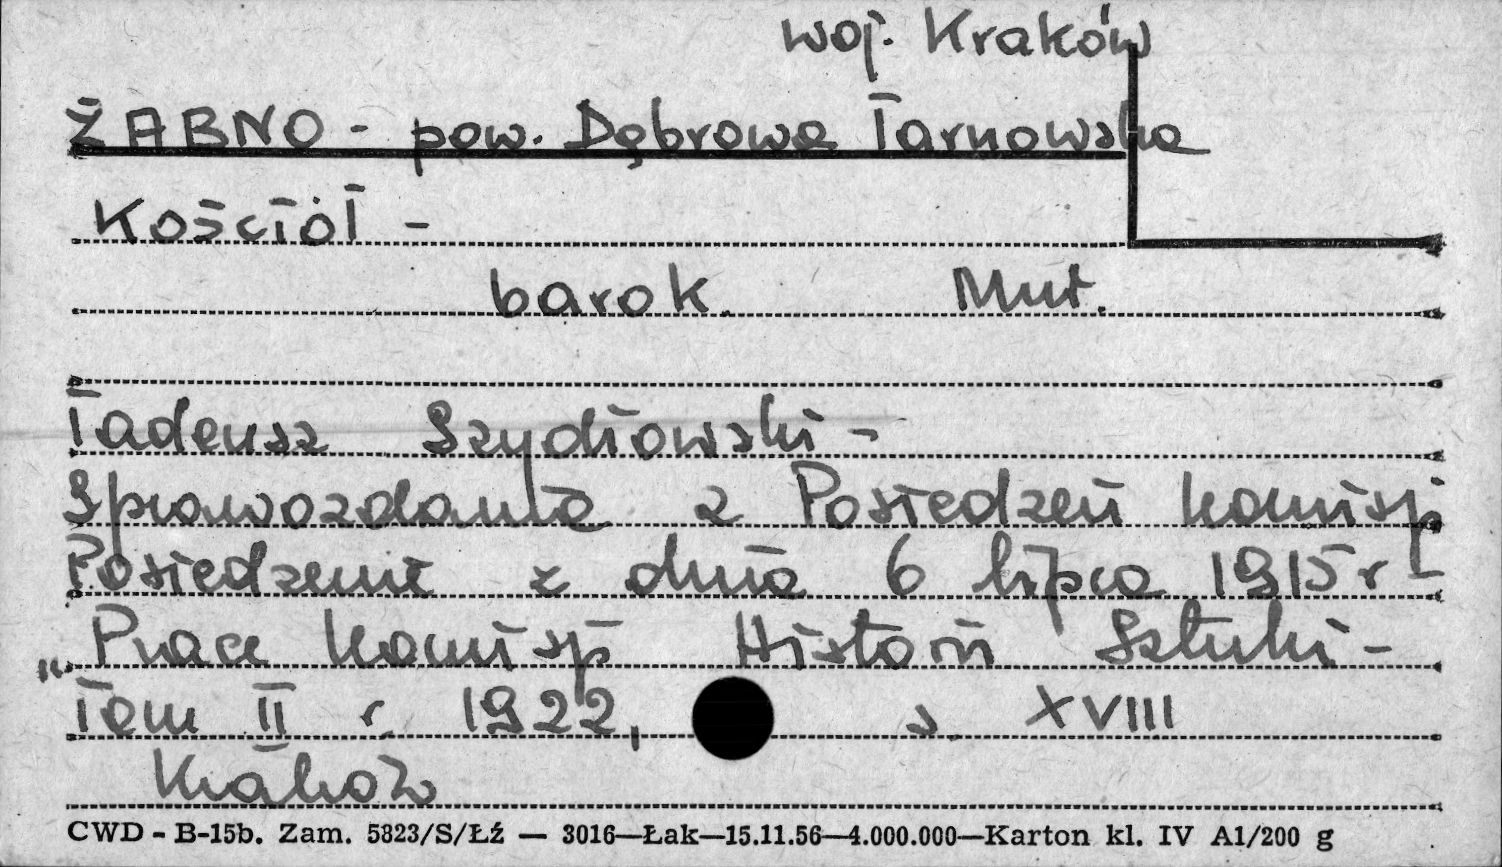 woj. Kraków
ŻABNO - pow. Dąbrowa Tarnowska
Kościół -
barok. Mut.
Tadeusz Szydłowski -
Sprawozdania z Posiedzeń Komisji
Posiedzenie z dnia 6 lipca 1915 r -
„Prace Komisji Historii Sztuki -
Tom II r. 1922, s. XVIII
Kraków
CWD - B-15b. Zam. 5823/S/Łź — 3016—Łak—15.11.56—4.000.000—Karton kl. IV A1/200 g